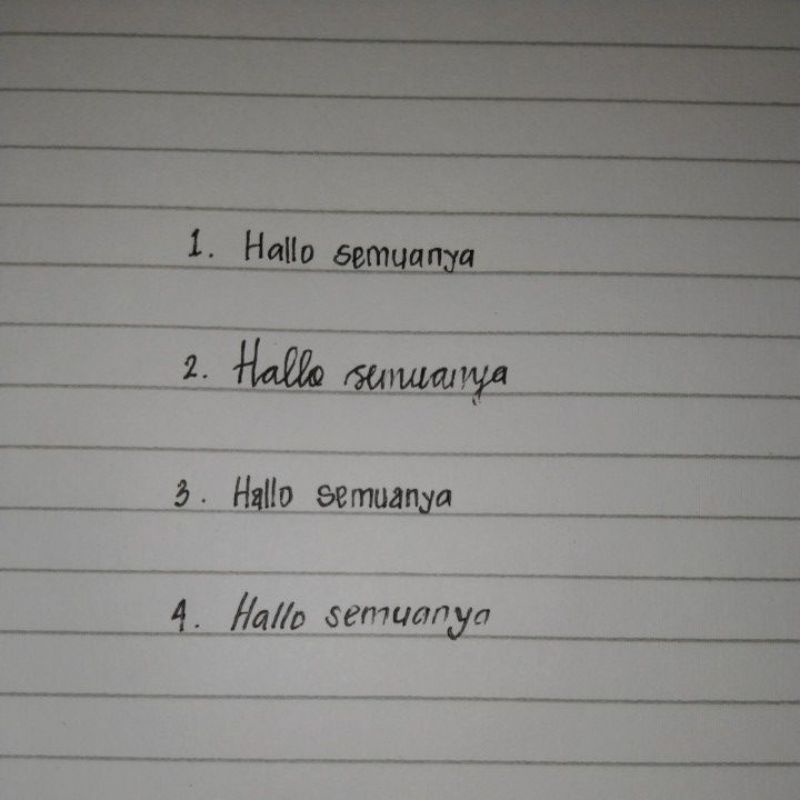 1. Hallo semuanya
2. Hallo semuanya
3. Hallo semuanya
4. Hallo semuanya